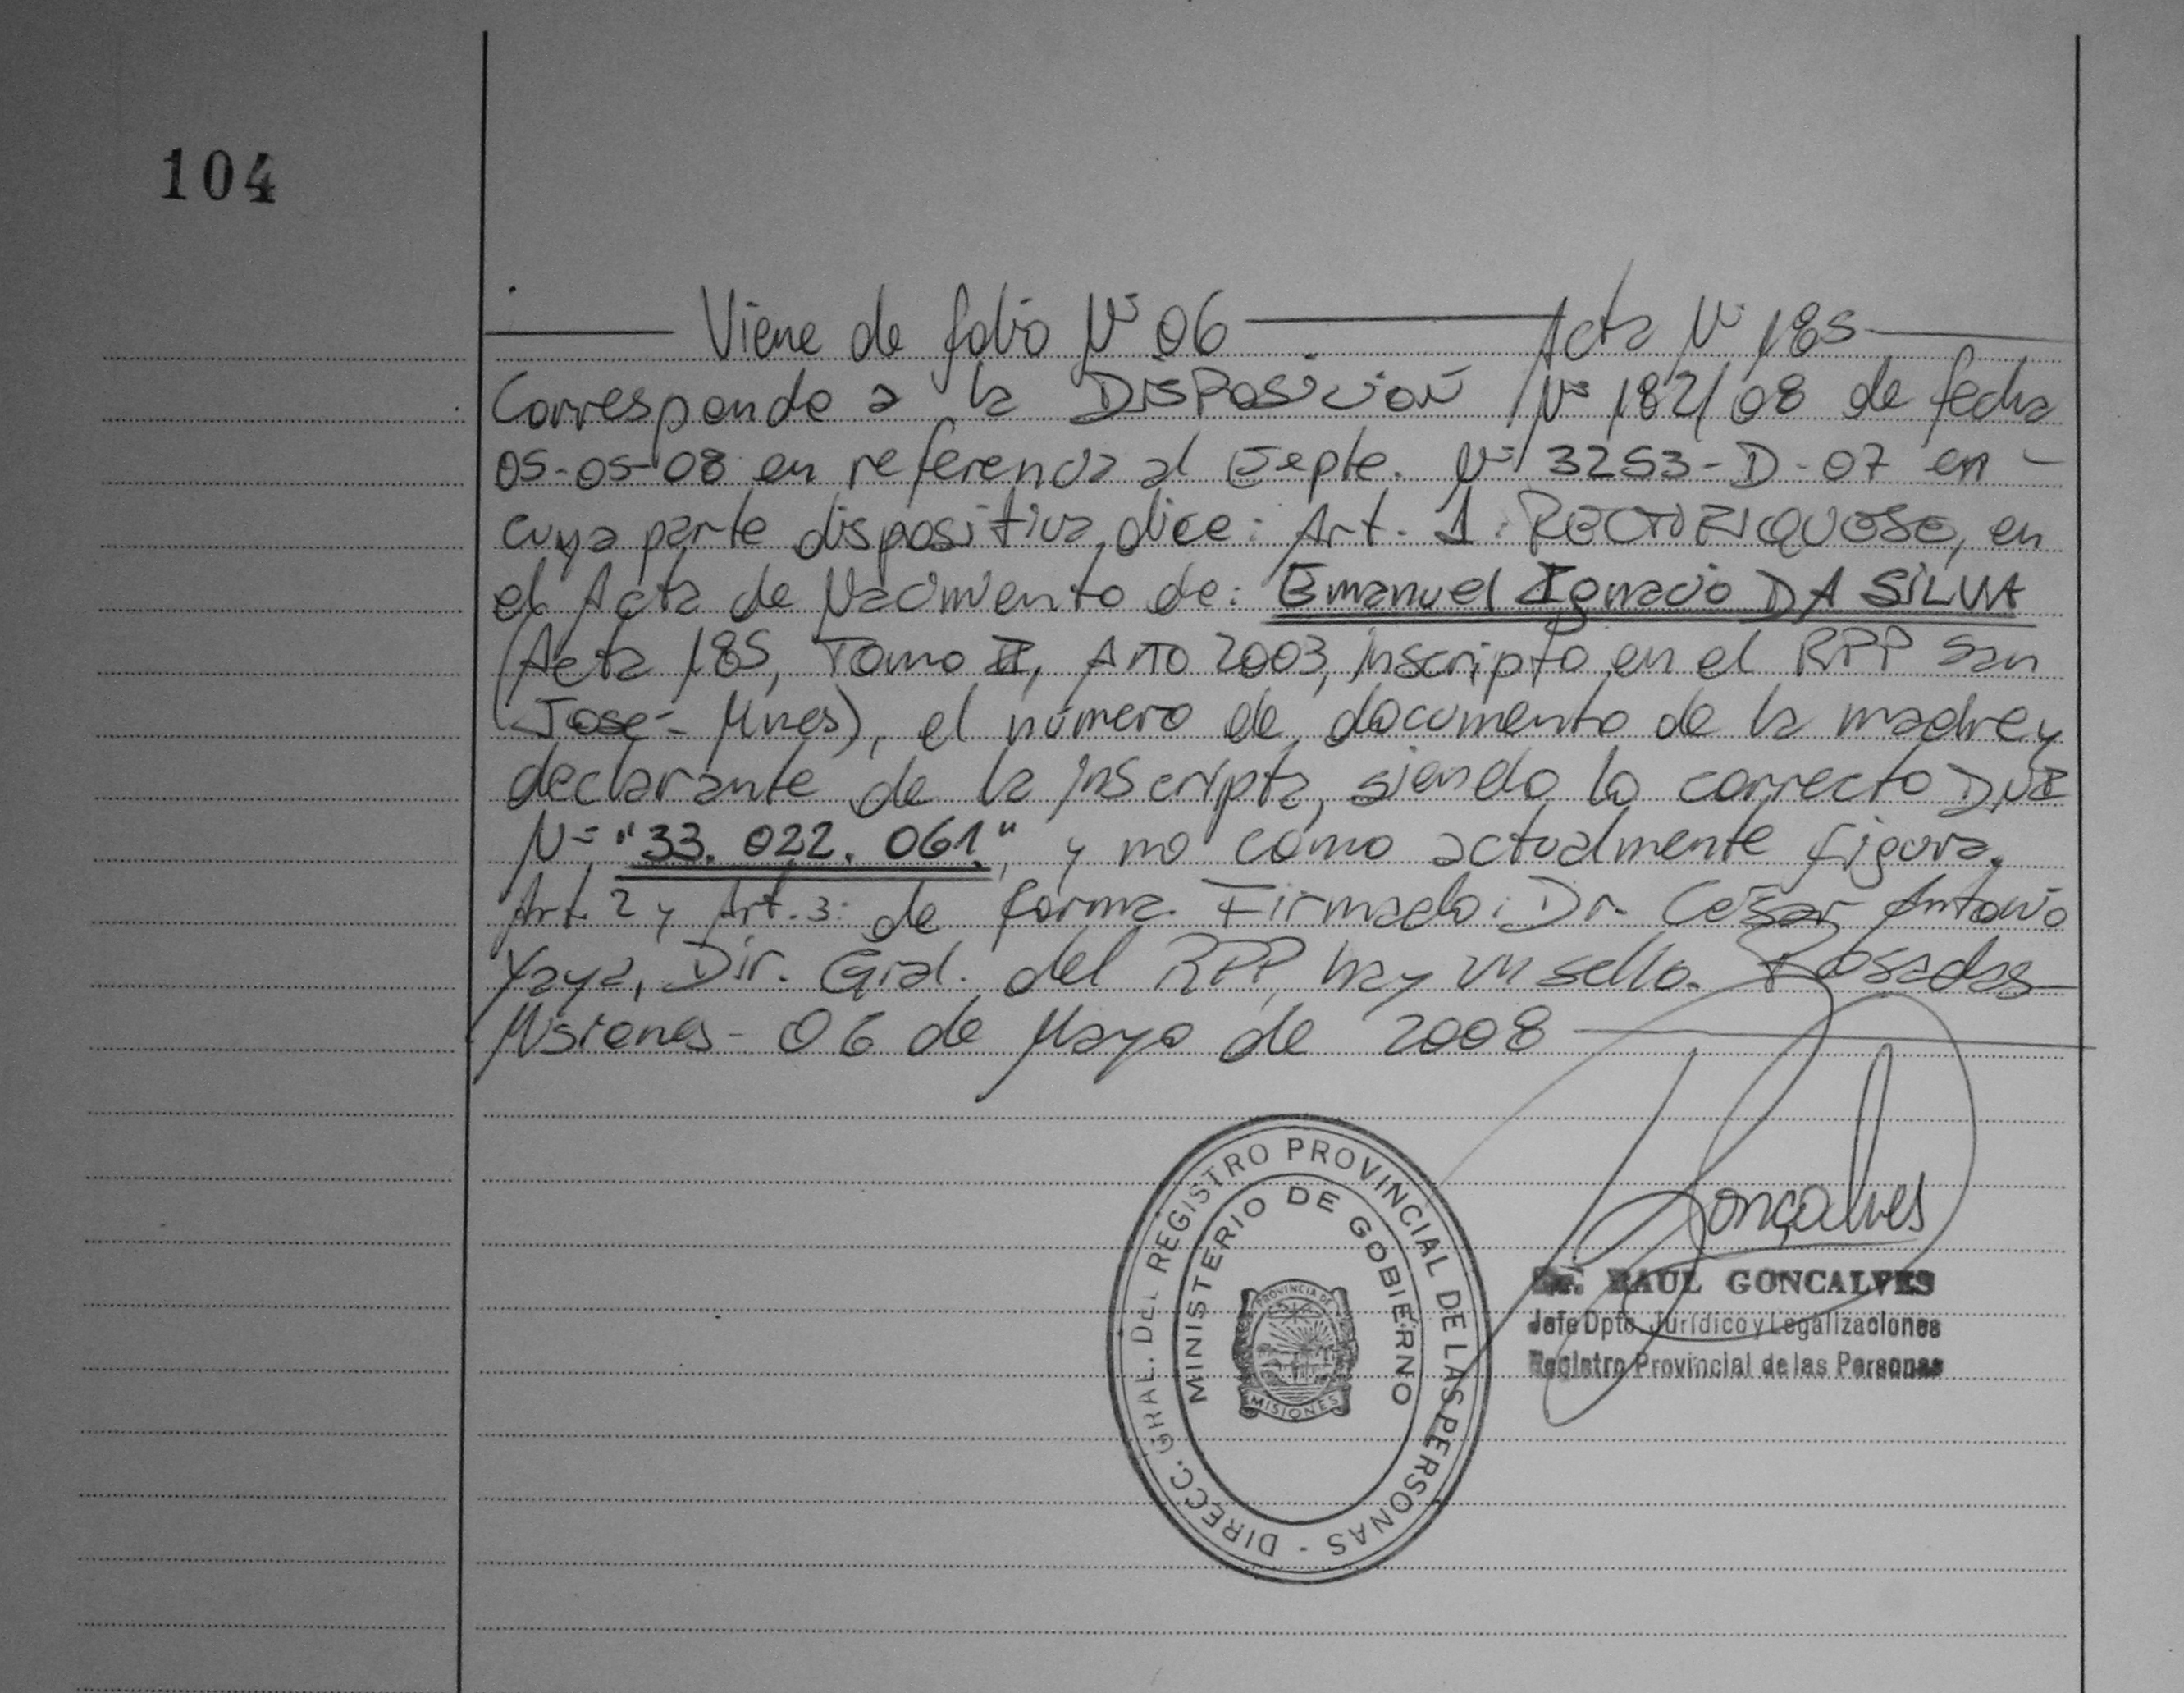 104
Viene de folio Nº 06 Acta Nº 185
Corresponde a la DISPOSICIÓN Nº 182/08 de fecha
05-05-08 en referencia al Expte. Nº 3253-D-07 en -
cuya parte dispositiva dice: Art. 1: RECTIFIQUESE, en
el Acta de Nacimiento de: Emanuel Ignacio DA SILVA
(Acta 185, Tomo II, Año 2003, inscripto en el RPP San
José - Mnes), el número de documento de la madre y
declarante de la inscripta, siendo lo correcto DNI
Nº "33.022.061", y no como actualmente figura.
Art. 2 y Art. 3: de forma. Firmado: Dr. César Antonio
Yaya, Dir. Gral. del RPP, hay un sello. Posadas
Misiones - 06 de Mayo de 2008
Gonçalves
DIRECC. GRAL. DEL REGISTRO PROVINCIAL DE LAS PERSONAS -
MINISTERIO DE GOBIERNO
PROVINCIA DE
MISIONES
Dr. RAUL GONCALVES
Jefe Dpto. Jurídico y Legalizaciones
Registro Provincial de las Personas